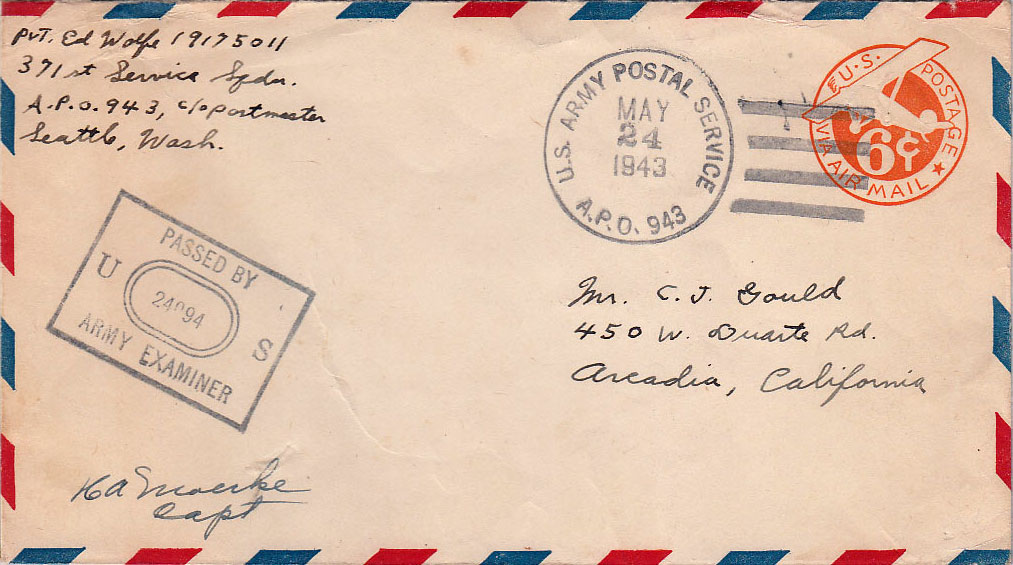 Pvt. Ed Wolfe 19175011
371st Service Sqdn.
A.P.O. 943, c/o Postmaster
Seattle, Wash.
U.S. ARMY POSTAL SERVICE
MAY
24
1943
A.P.O. 943
U.S. POSTAGE
6¢
VIA AIR MAIL
PASSED BY
U S
ARMY EXAMINER
Mr. C. J. Gould
450 W. Duarte Rd.
Arcadia, California
Capt